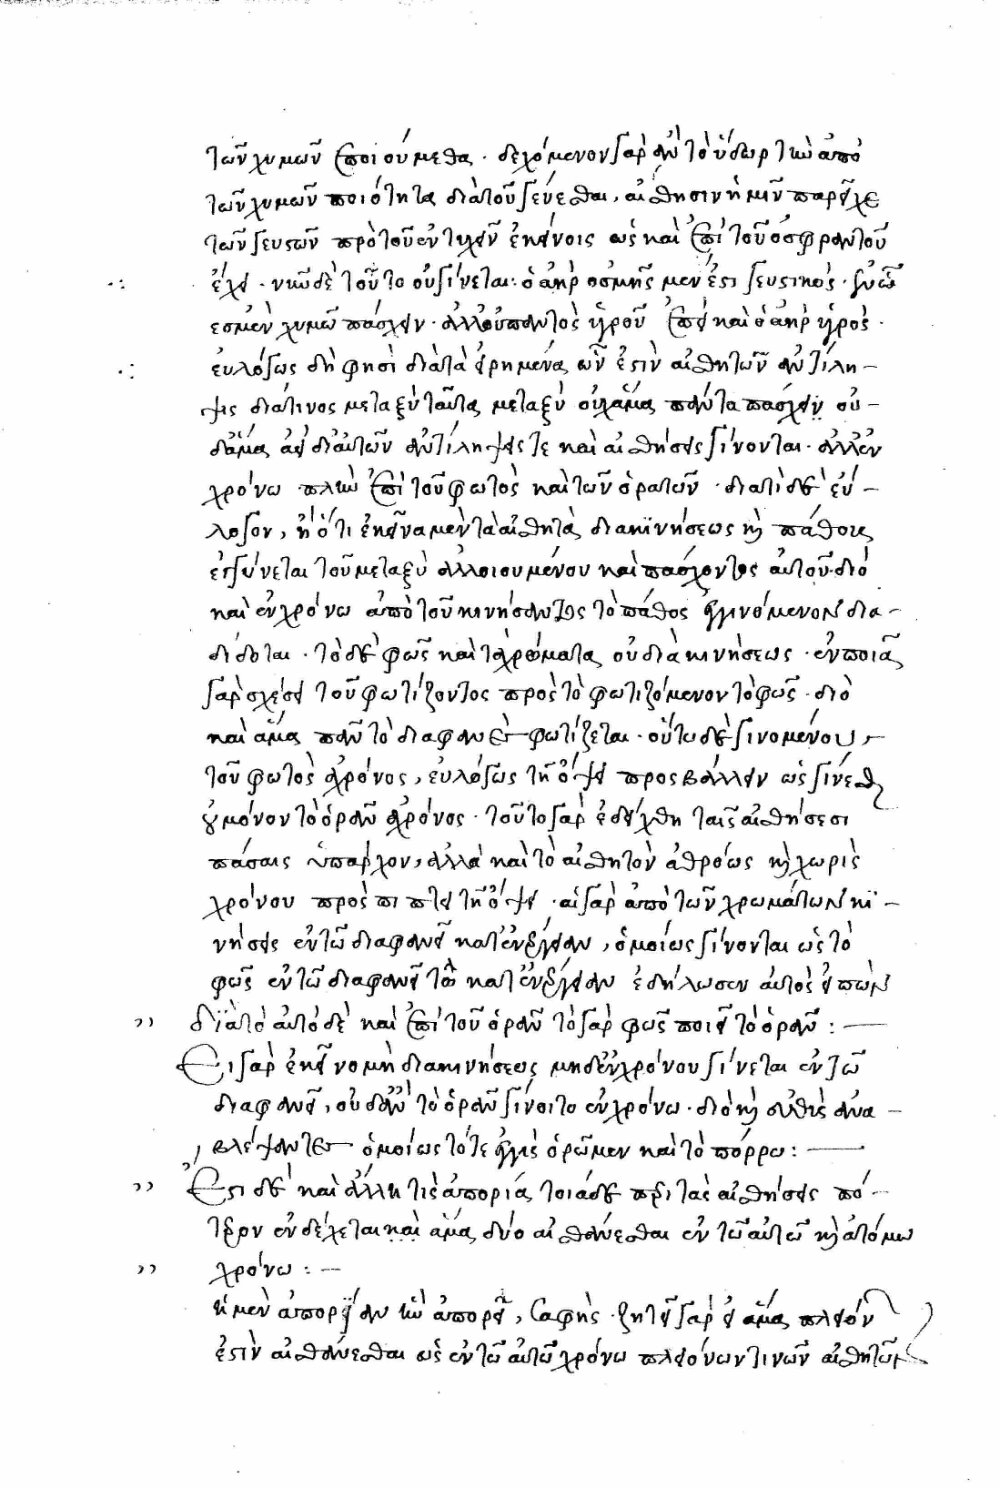 τῶν χυμῶν ἐποιούμεθα · δεχόμενον γὰρ ἂν τὸ ὕδωρ τὴν ἀπὸ
τῶν χυμῶν ποιότητα διὰ τοῦ γενέσθαι, αἴσθησιν ἡμῖν παρεῖχε
τῶν γευστῶν πρὸ τοῦ ἐντυχεῖν ἐκείνοις ὡς καὶ ἐπὶ τοῦ ὀσφραντοῦ
ἔχει · νῦν δὲ τοῦτο οὐ γίνεται : ὁ ἀὴρ ὀσμῆς μέν ἐστι γευστικὸς ·
ἐσμὲν χυμῶν πάσχειν · ἀλλ' ὑπὸ παντὸς ὑγροῦ ἐπεὶ καὶ ὁ ἀὴρ ὑγρός ·
εὐλόγως δή φησι διὰ τὰ εἰρημένα, ὧν ἐστιν αἰσθητῶν ἀντίλη-
ψις διά τινος μεταξὺ ταῦτα μεταξὺ οὐχ ἅμα πάντα πάσχειν οὐ-
δ' ἅμα αἱ δι' αὐτῶν ἀντιλήψεις τε καὶ αἰσθήσεις γίνονται · ἀλλ' ἐν
χρόνω πλὴν ἐπὶ τοῦ φωτὸς καὶ τῶν ὁρατῶν · διὰ τί δὲ εὔ-
λογον, ἢ ὅτι ἐκεῖνα μὲν τὰ αἰσθητὰ διὰ κινήσεως καὶ πάθους
γίνεται τοῦ μεταξὺ ἀλλοιουμένου καὶ πάσχοντος αὐτοῦ · διὸ
καὶ ἐν χρόνω ἀπὸ τοῦ κινήσαντος τὸ πάθος ἐγγινόμενον δια-
δίδοται · τὸ δὲ φῶς καὶ τὰ χρώματα, οὐ διὰ κινήσεως · ἐν ποιᾶ
γὰρ σχέσει τοῦ φωτίζοντος πρὸς τὸ φωτιζόμενον τὸ φῶς · διὸ
καὶ ἅμα πᾶν τὸ διαφανὲς φωτίζεται · οὕτω δὲ γινομένου
τοῦ φωτὸς ἀχρόνως, εὐλόγως τῆ ὄψει προσβάλλειν ὡς γίνεσθαι
οὐ μόνον τὸ ὁρᾶν ἀχρόνως · τοῦτο γὰρ ἐδείχθη ταῖς αἰσθήσεσι
πάσαις ὑπάρχον, ἀλλὰ καὶ τὸ αἰσθητὸν ἀθρόως καὶ χωρὶς
χρόνου προσπίπτει τῆ ὄψει · αἱ γὰρ ἀπὸ τῶν χρωμάτων κι-
νήσεις ἐν τῶ διαφανεῖ κατ' ἐνέργειαν, ὁμοίως γίνονται ὡς τὸ
φῶς ἐν τῶ διαφανεῖ τῶ κατ' ἐνέργειαν ἐδήλωσεν αὐτὸς εἰπὼν
διὰ τὸ αὐτὸ δὲ καὶ ἐπὶ τοῦ ὁρᾶν τὸ γὰρ φῶς ποιεῖ τὸ ὁρᾶν : —
Εἰ γὰρ ἐκεῖνο μὴ διὰ κινήσεως μηδ' ἐν χρόνου γίνεται ἐν τῶ
διαφανεῖ, οὐδ' ἂν τὸ ὁρᾶν γίνοιτο ἐν χρόνω · διὸ καὶ εὐθὺς ἀνα-
βλέψαντες ὁμοίως τότε ἐγγὺς ὁρῶμεν καὶ τὸ πόρρω : —
Ἔστι δὲ καὶ ἄλλη τις ἀπορία, τοιάδε περὶ τὰς αἰσθήσεις πό-
τερον ἐνδέχεται καὶ ἅμα, δύο αἰσθάνεσθαι ἐν τῶ αὐτῶ καὶ ἀτόμω
χρόνω : —
τὴν μὲν ἀπορίαν ἣν ἀπορεῖ, σαφής · ζητεῖ γὰρ εἰ ἅμα, πλειόν
ἐστιν αἰσθάνεσθαι ὡς ἐν τῶ αὐτῶ χρόνω πλειόνων τινῶν αἰσθητῶν